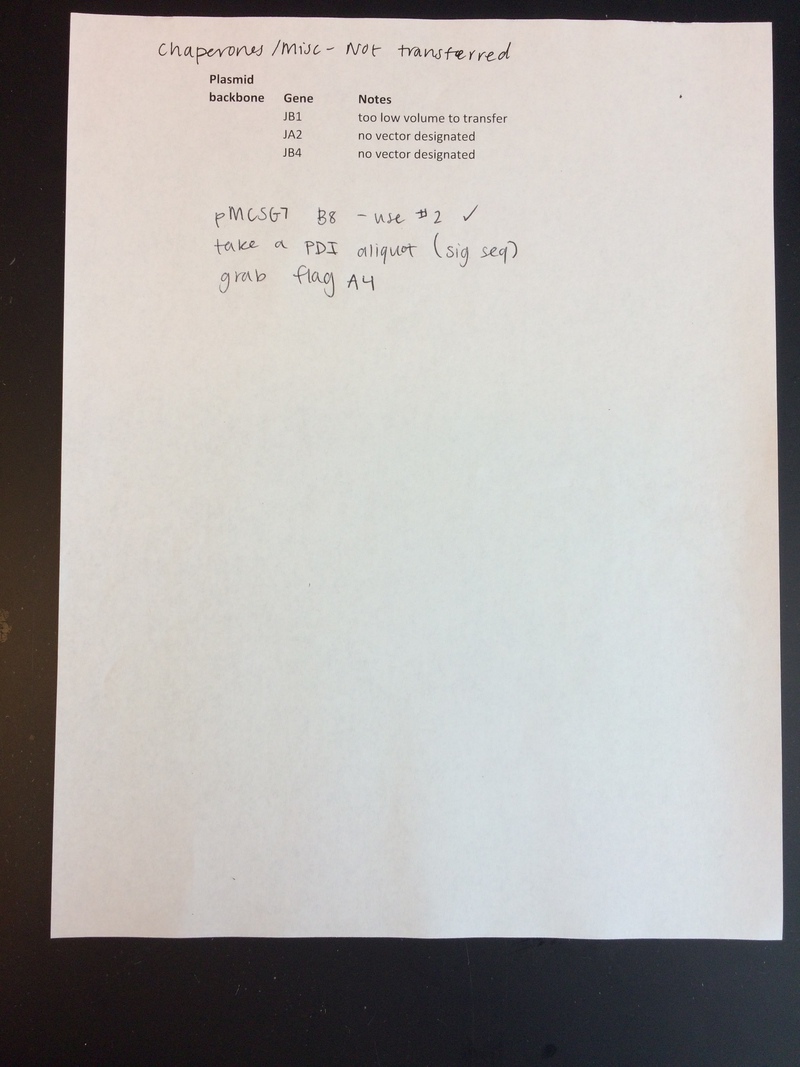 Chaperones/Misc - Not transferred
Plasmid
backbone Gene Notes
JB1 too low volume to transfer
JA2 no vector designated
JB4 no vector designated
pMCSG7 B8 - use #2 ✓
take a PDI aliquot (sig seq)
grab flag A4